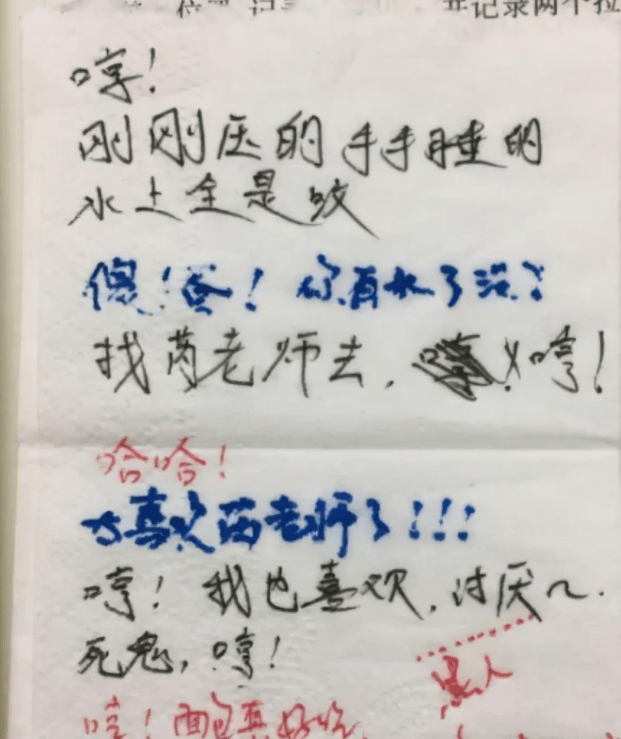 位 记
并记录两个拉
哼!
刚刚压的手手睡的
水上全是皎
傻!爸! 你有水了没?
找芮老师去, 哼!
哈哈!
太喜欢芮老师了!!!
哼! 我也喜欢,讨厌~.
死鬼,哼!
黑人
哼!面包真好吃